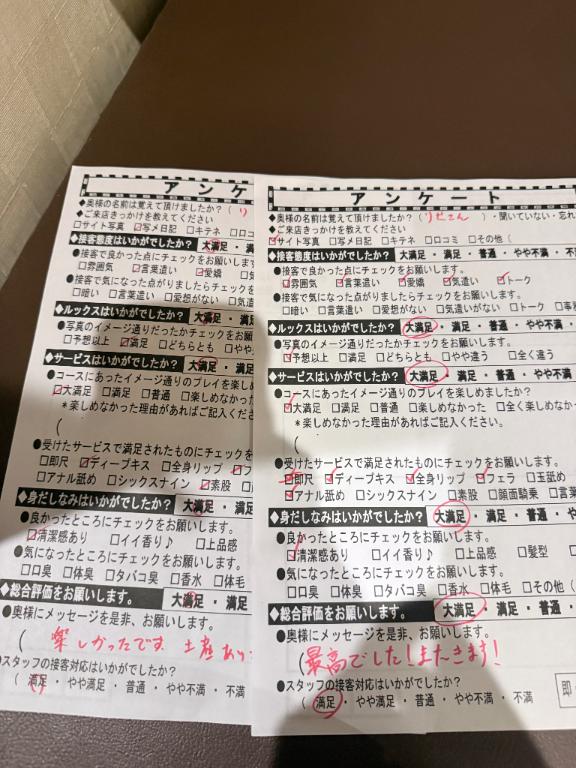 アンケ
◆奥様の名前は覚えて頂けましたか？（り
◆ご来店きっかけを教えてください
□サイト写真 □写メ日記 □キテネ □口コ
◆接客態度はいかがでしたか？ 大満足・満
●接客で良かった点にチェックをお願いしま
□雰囲気 □言葉遣い □愛嬌 □気
●接客で気になった点がりましたらチェックを
□暗い □言葉遣い □愛想がない □気遣
◆ルックスはいかがでしたか？ 大満足・満
●写真のイメージ通りだったかチェックをお願
□予想以上 □満足 □どちらとも □やや
◆サービスはいかがでしたか？ 大満足・満
●コースにあったイメージ通りのプレイを楽し
□大満足 □満足 □普通 □楽しめなかっ
＊楽しめなかった理由があればご記入くださ
（
●受けたサービスで満足されたものにチェック
□即尺 □ディープキス □全身リップ □フ
□アナル舐め □シックスナイン □素股
◆身だしなみはいかがでしたか？ 大満足・満
●良かったところにチェックをお願いします。
□清潔感あり □イイ香り♪ □上品感
●気になったところにチェックをお願いします。
□口臭 □体臭 □タバコ臭 □香水 □体毛
◆総合評価をお願いします。 大満足・満足
●奥様にメッセージを是非、お願いします。
（楽しかったです
●スタッフの接客対応はいかがでしたか？
（ 満足 ・ やや満足 ・ 普通 ・ やや不満 ・ 不満
アンケート
◆奥様の名前は覚えて頂けましたか？（ りせさん ）・聞いていない・忘れ
◆ご来店きっかけを教えてください
□サイト写真 □写メ日記 □キテネ □口コミ □その他（
◆接客態度はいかがでしたか？ 大満足 ・ 満足 ・ 普通 ・ やや不満 ・ 不
●接客で良かった点にチェックをお願いします。
□雰囲気 □言葉遣い □愛嬌 □気遣い □トーク
●接客で気になった点がりましたらチェックをお願いします。
□暗い □言葉遣い □愛想がない □気遣いがない □トーク □事
◆ルックスはいかがでしたか？ 大満足 ・ 満足 ・ 普通 ・ やや不満
●写真のイメージ通りだったかチェックをお願いします。
□予想以上 □満足 □どちらとも □やや違う □全く違う
◆サービスはいかがでしたか？ 大満足 ・ 満足 ・ 普通 ・ やや不満
●コースにあったイメージ通りのプレイを楽しめましたか？
□大満足 □満足 □普通 □楽しめなかった □全く楽しめなかっ
＊楽しめなかった理由があればご記入ください。
（
●受けたサービスで満足されたものにチェックをお願いします。
□即尺 □ディープキス □全身リップ □フェラ □玉舐め
□アナル舐め □シックスナイン □素股 □顔面騎乗 □言
◆身だしなみはいかがでしたか？ 大満足 ・ 満足 ・ 普通 ・ や
●良かったところにチェックをお願いします。
□清潔感あり □イイ香り♪ □上品感 □髪型
●気になったところにチェックをお願いします。
□口臭 □体臭 □タバコ臭 □香水 □体毛 □その他（
◆総合評価をお願いします。 大満足 ・ 満足 ・ 普通 ・
●奥様にメッセージを是非、お願いします。
（最高でした！またきます！
●スタッフの接客対応はいかがでしたか？
（ 満足 ・ やや満足 ・ 普通 ・ やや不満 ・ 不満 即